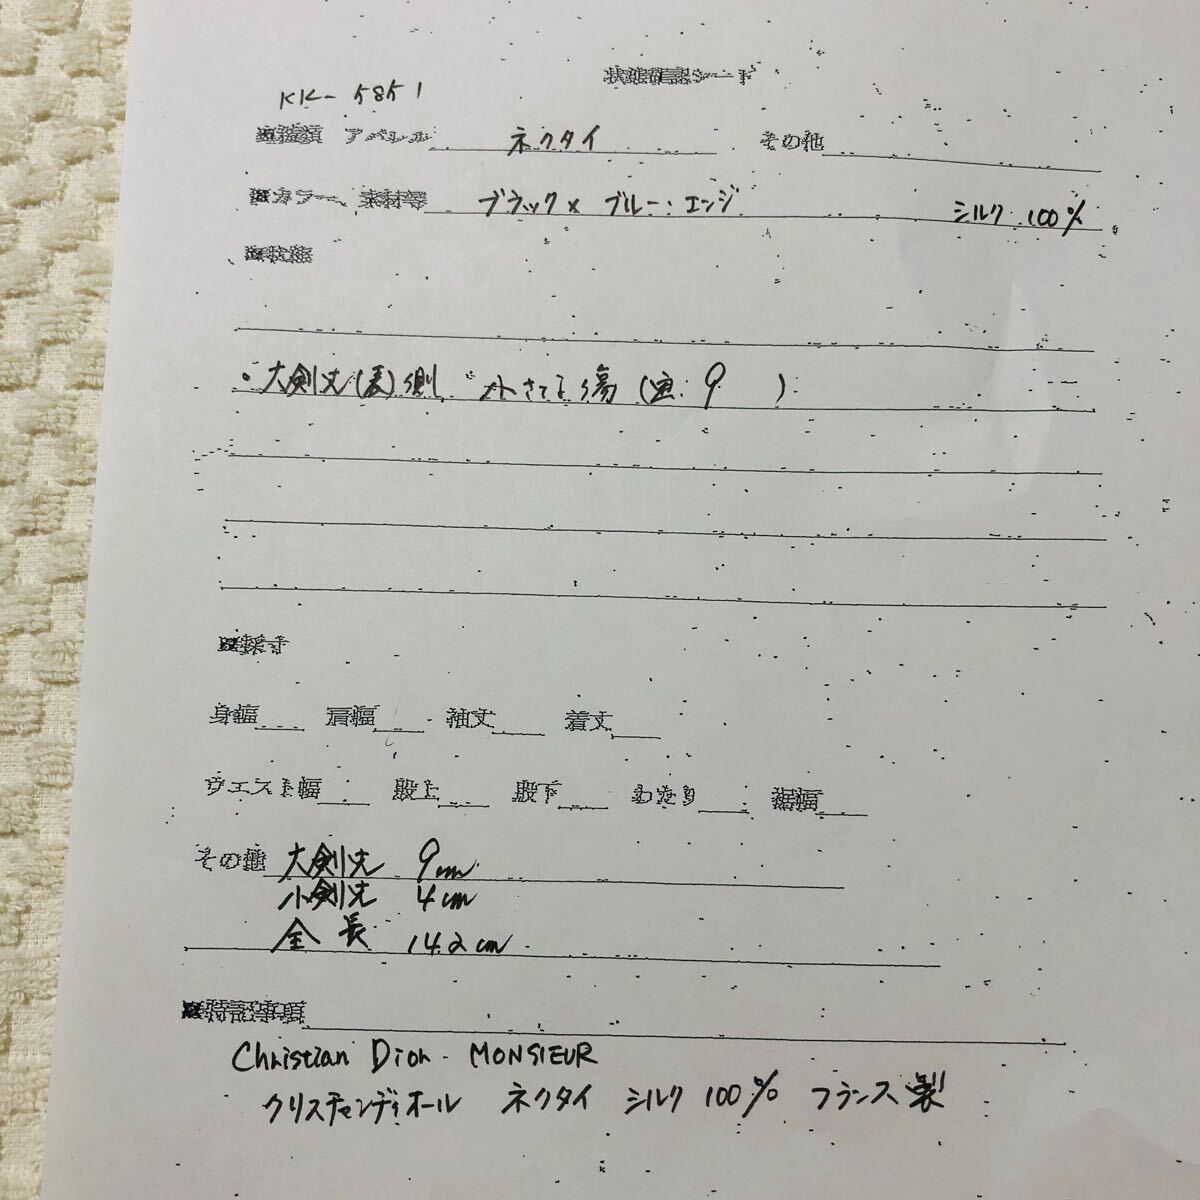 状態確認シート
KK-5851
■種類 アパレル ネクタイ その他
■カラー、素材等 ブラック×ブルー:エンジ シルク 100%
■状態
・大剣丈(表)側 小さな傷(画:9 )
■採寸
身幅 肩幅 袖丈 着丈
ウエスト幅 股上 股下 わたり 裾幅
その他 大剣丈 9cm
小剣丈 4cm
全長 142cm
■特記事項
Christian Dior MONSIEUR
クリスチャンディオール ネクタイ シルク 100% フランス製